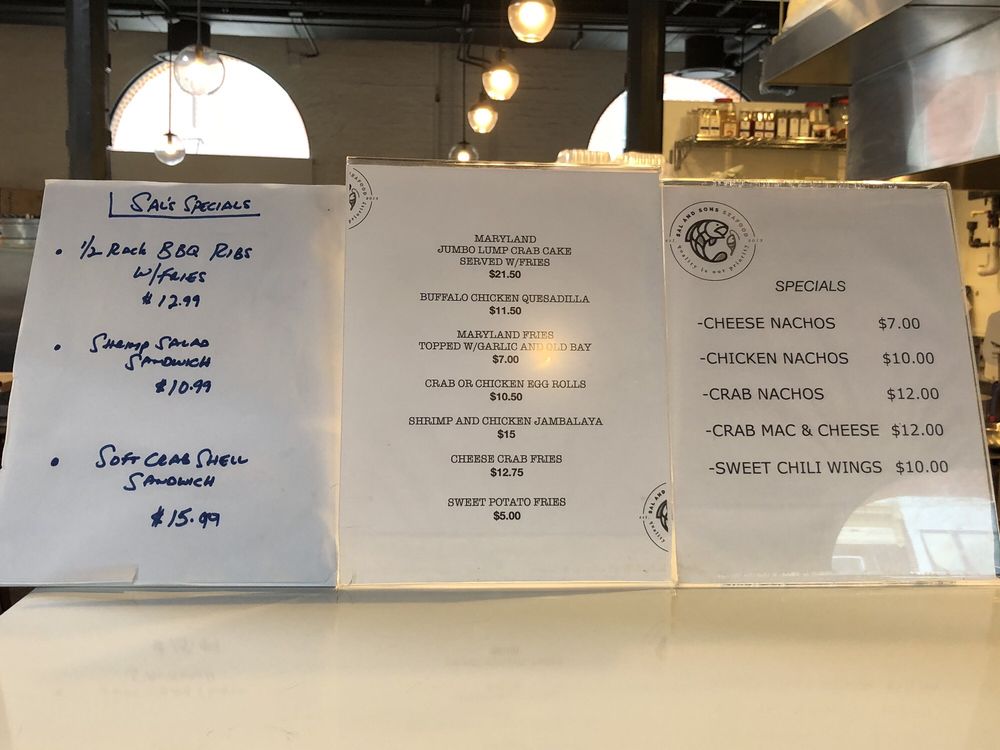 SAL'S SPECIALS
• 1/2 Rack BBQ RIBS
W/FRIES
$12.99
• Shrimp SALAD
SANDWICH
$10.99
• SOFT CRAB SHELL
SANDWICH
$15.99
MARYLAND
JUMBO LUMP CRAB CAKE
SERVED W/FRIES
$21.50
BUFFALO CHICKEN QUESADILLA
$11.50
MARYLAND FRIES
TOPPED W/GARLIC AND OLD BAY
$7.00
CRAB OR CHICKEN EGG ROLLS
$10.50
SHRIMP AND CHICKEN JAMBALAYA
$15
CHEESE CRAB FRIES
$12.75
SWEET POTATO FRIES
$5.00
SAL AND SONS SEAFOOD
quality is our priority
SPECIALS
-CHEESE NACHOS $7.00
-CHICKEN NACHOS $10.00
-CRAB NACHOS $12.00
-CRAB MAC & CHEESE $12.00
-SWEET CHILI WINGS $10.00